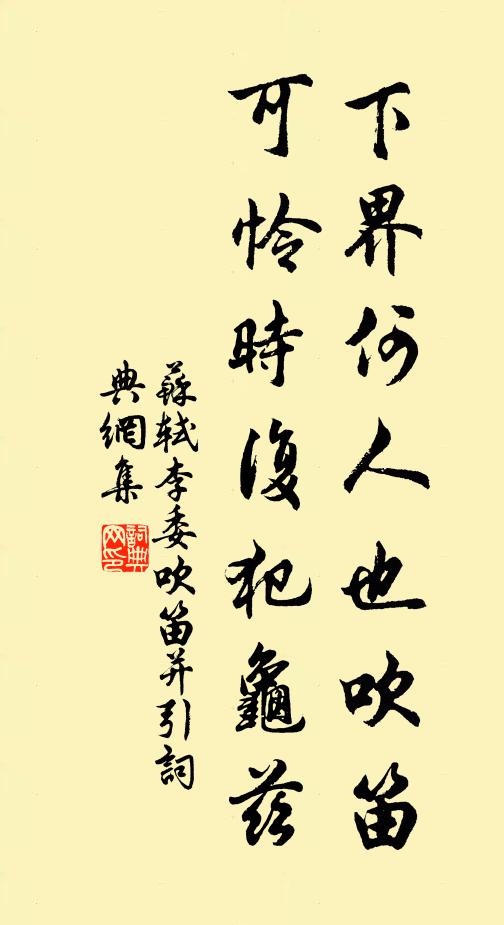 下界何人也吹笛
可怜時復犯龜茲
蘇軾李委吹笛并引詞
典網集
詞典
网印